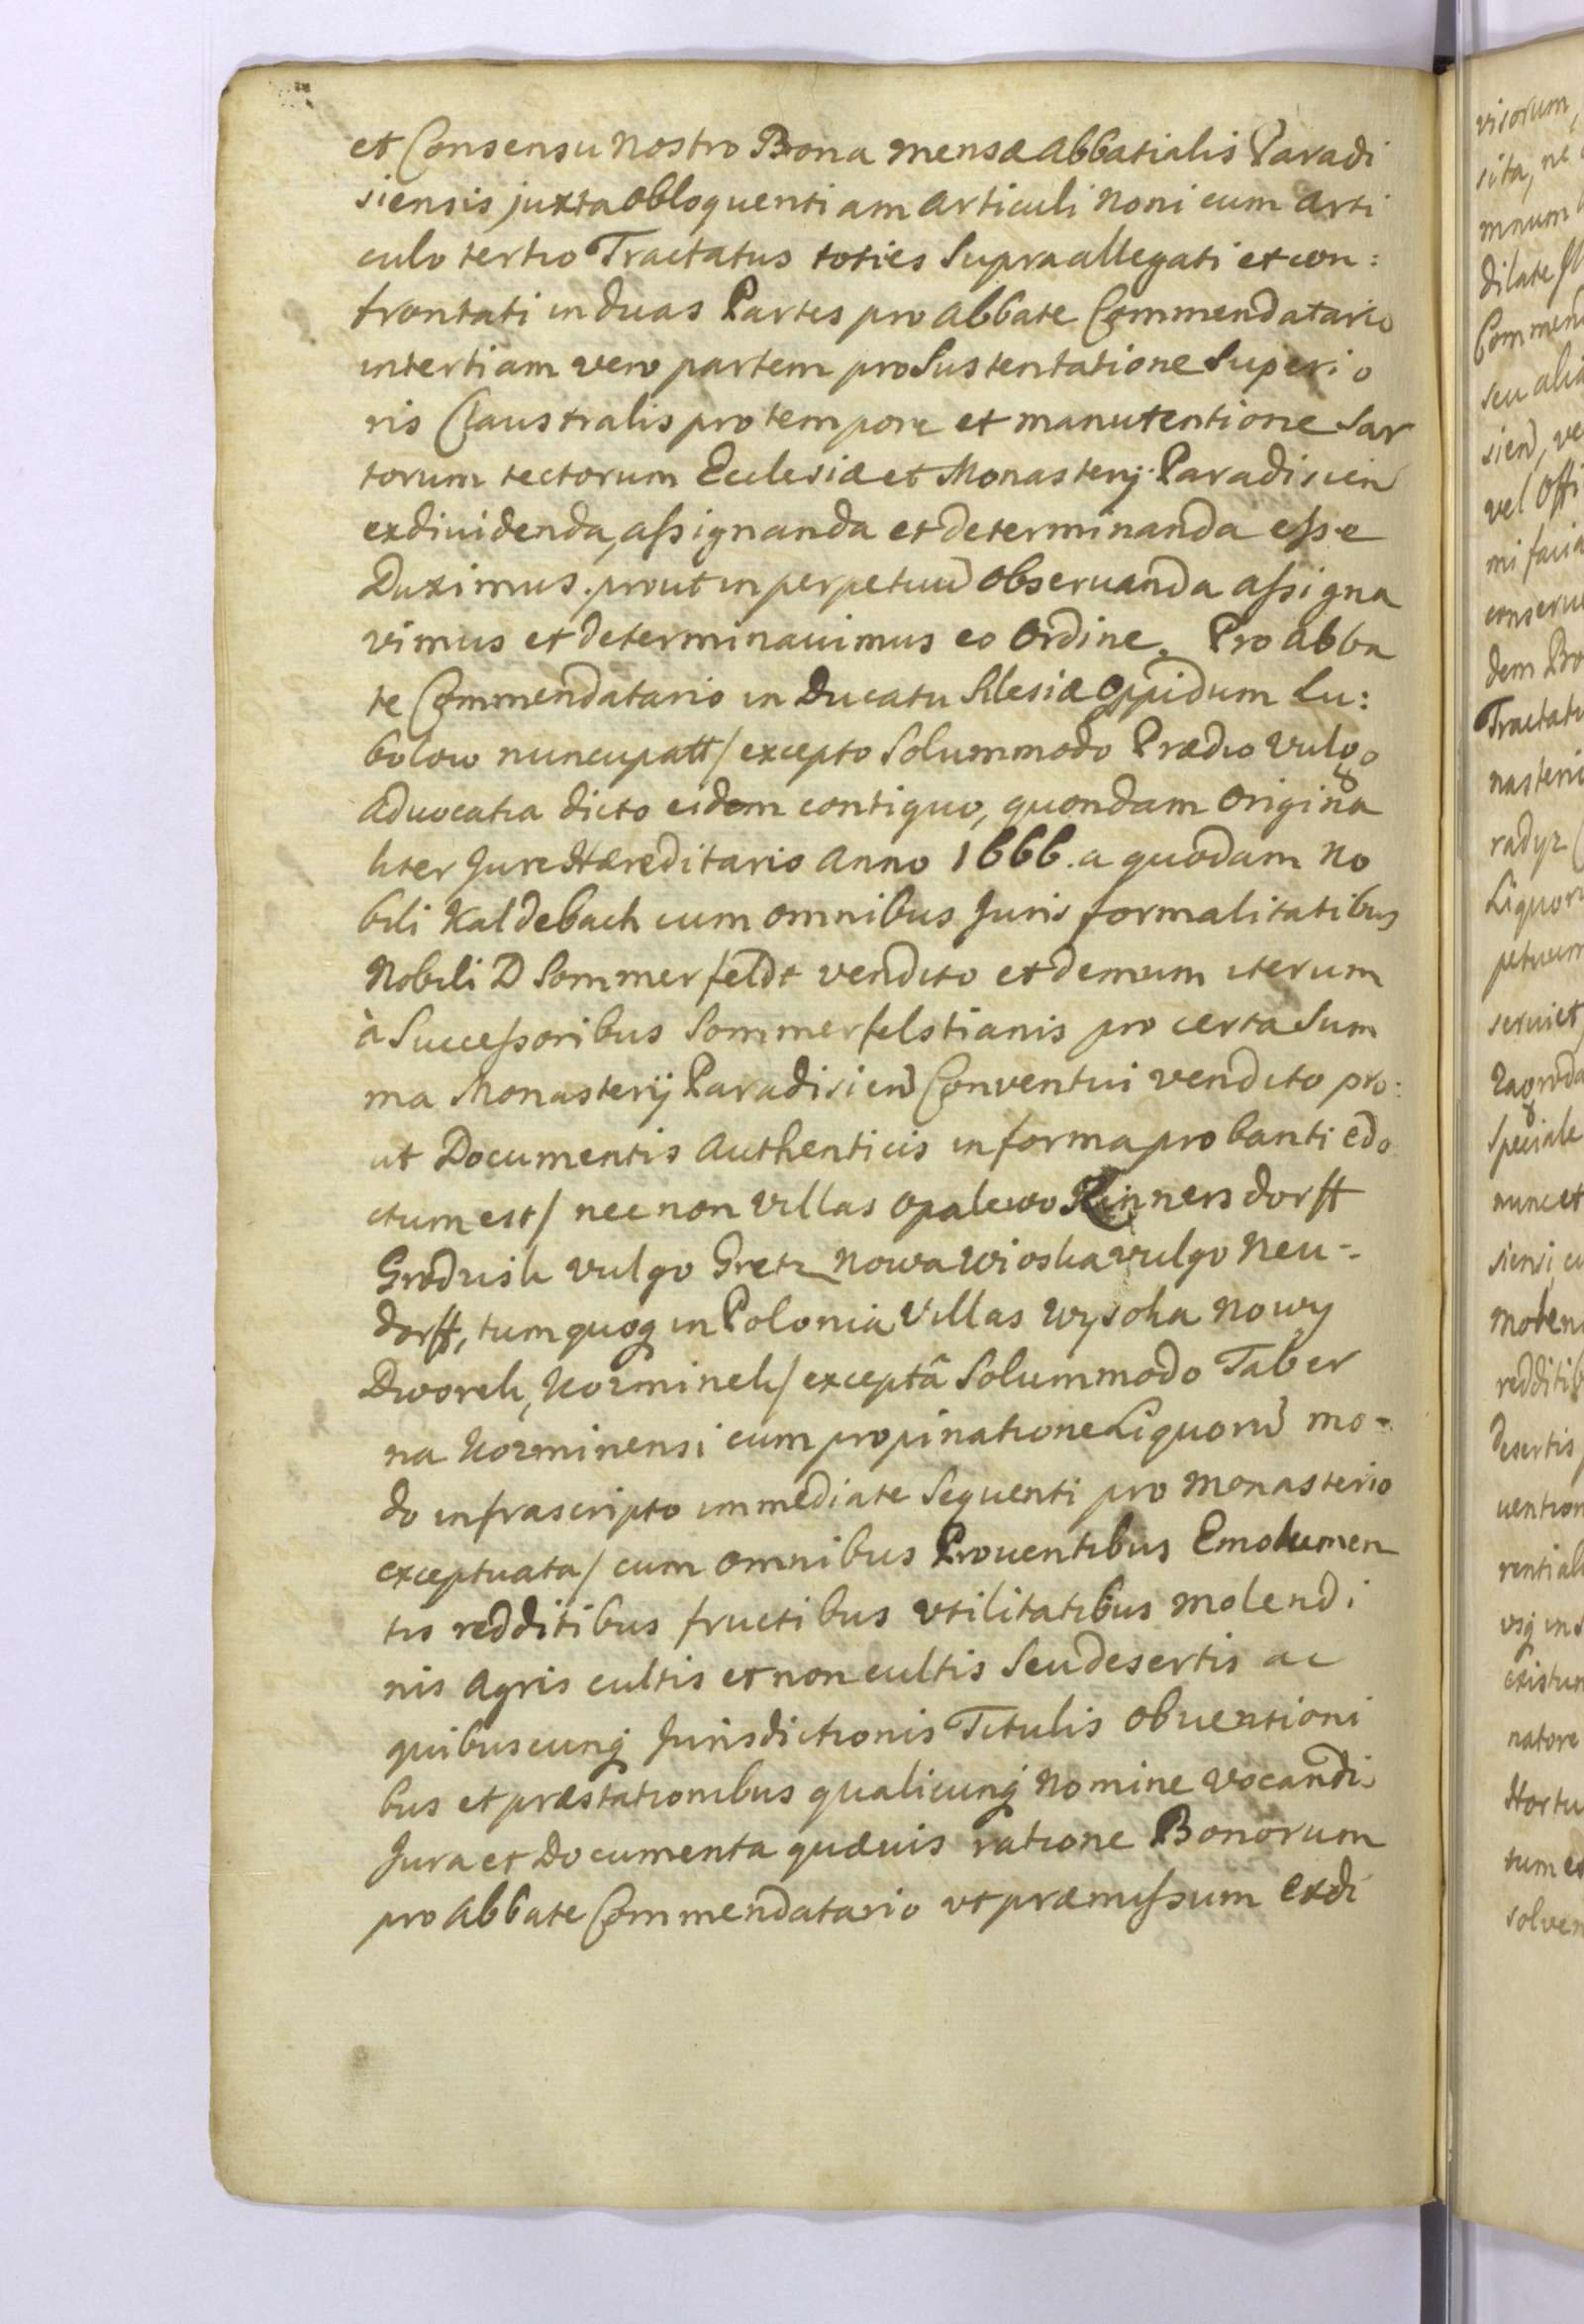 et Consensu Nostro Bona mensæ Abbatialis Paradi
siensis juxta obloquentiam Articuli Noni cum Arti
culo tertio Tractatus toties Supra allegati et con:
frontati in duas Partes pro Abbate Commendatario
in tertiam vero partem pro Sustentatione Superio
ris Claustralis pro tempore et manutentione Sar
torum tectorum Ecclesiæ et Monasterij Paradisien
exdiuidenda, assignanda et determinanda esse
Duximus. prout in perpetuu observanda assigna
vimus et determinauimus eo Ordine. Pro Abba
te Commendatario in Ducatu Silesiæ Oppidum Lu:
bolow nuncupatt / excepto Solummodo Prædio vulgo
Aduocatia dicto eidem contiguo, quondam Origina
liter Jure Hæreditario Anno 1666. a quodam No
bili Kaldebach cum omnibus Juris formalitatibus
Nobili D Sommerfeldt vendito et demum iterum
à Successoribus Sommerfelstianis pro certa Sum
ma Monasterij Paradisien Conventui vendito pro:
ut Documentis Authenticis in forma probanti edo
ctum est / nec non Villas Opalewo Rinnersdorff
Grodzisk vulgo Gretz Nowa Wioska vulgo Neu-
dorff, tum quoq in Polonia Villas Wysoka Nowy
Dworek, Kozminek / exceptâ Solummodo Taber
na Kozminensi cum propinatione Liquoru mo-
do infrascripto immediate Sequenti pro Monasterio
exceptuata / cum omnibus Prouentibus Emolumen
tis redditibus fructibus vtilitatibus Molendi
nis Agris cultis et non cultis Seu desertis ac
quibuscunq Jurisdictionis Titulis Obuentioni
bus et præstationibus qualicunq Nomine vocandi
Jura et Documenta quæuis ratione Bonorum
pro Abbate Commendatario vt præmissum exdi
visorum,
sita, ne
mnum
dilate
Commen
seu alia
sien, ve
vel Offi
mi facia
conseru
dem Bo
Tractatu
nasteri
radyz
Liquor
petuum
seruiet
zagroda
Speciale
nunc et
siensi cu
molen
redditib
desertis
uention
rential
usq in
existen
natore
Hortu
tum e
solven